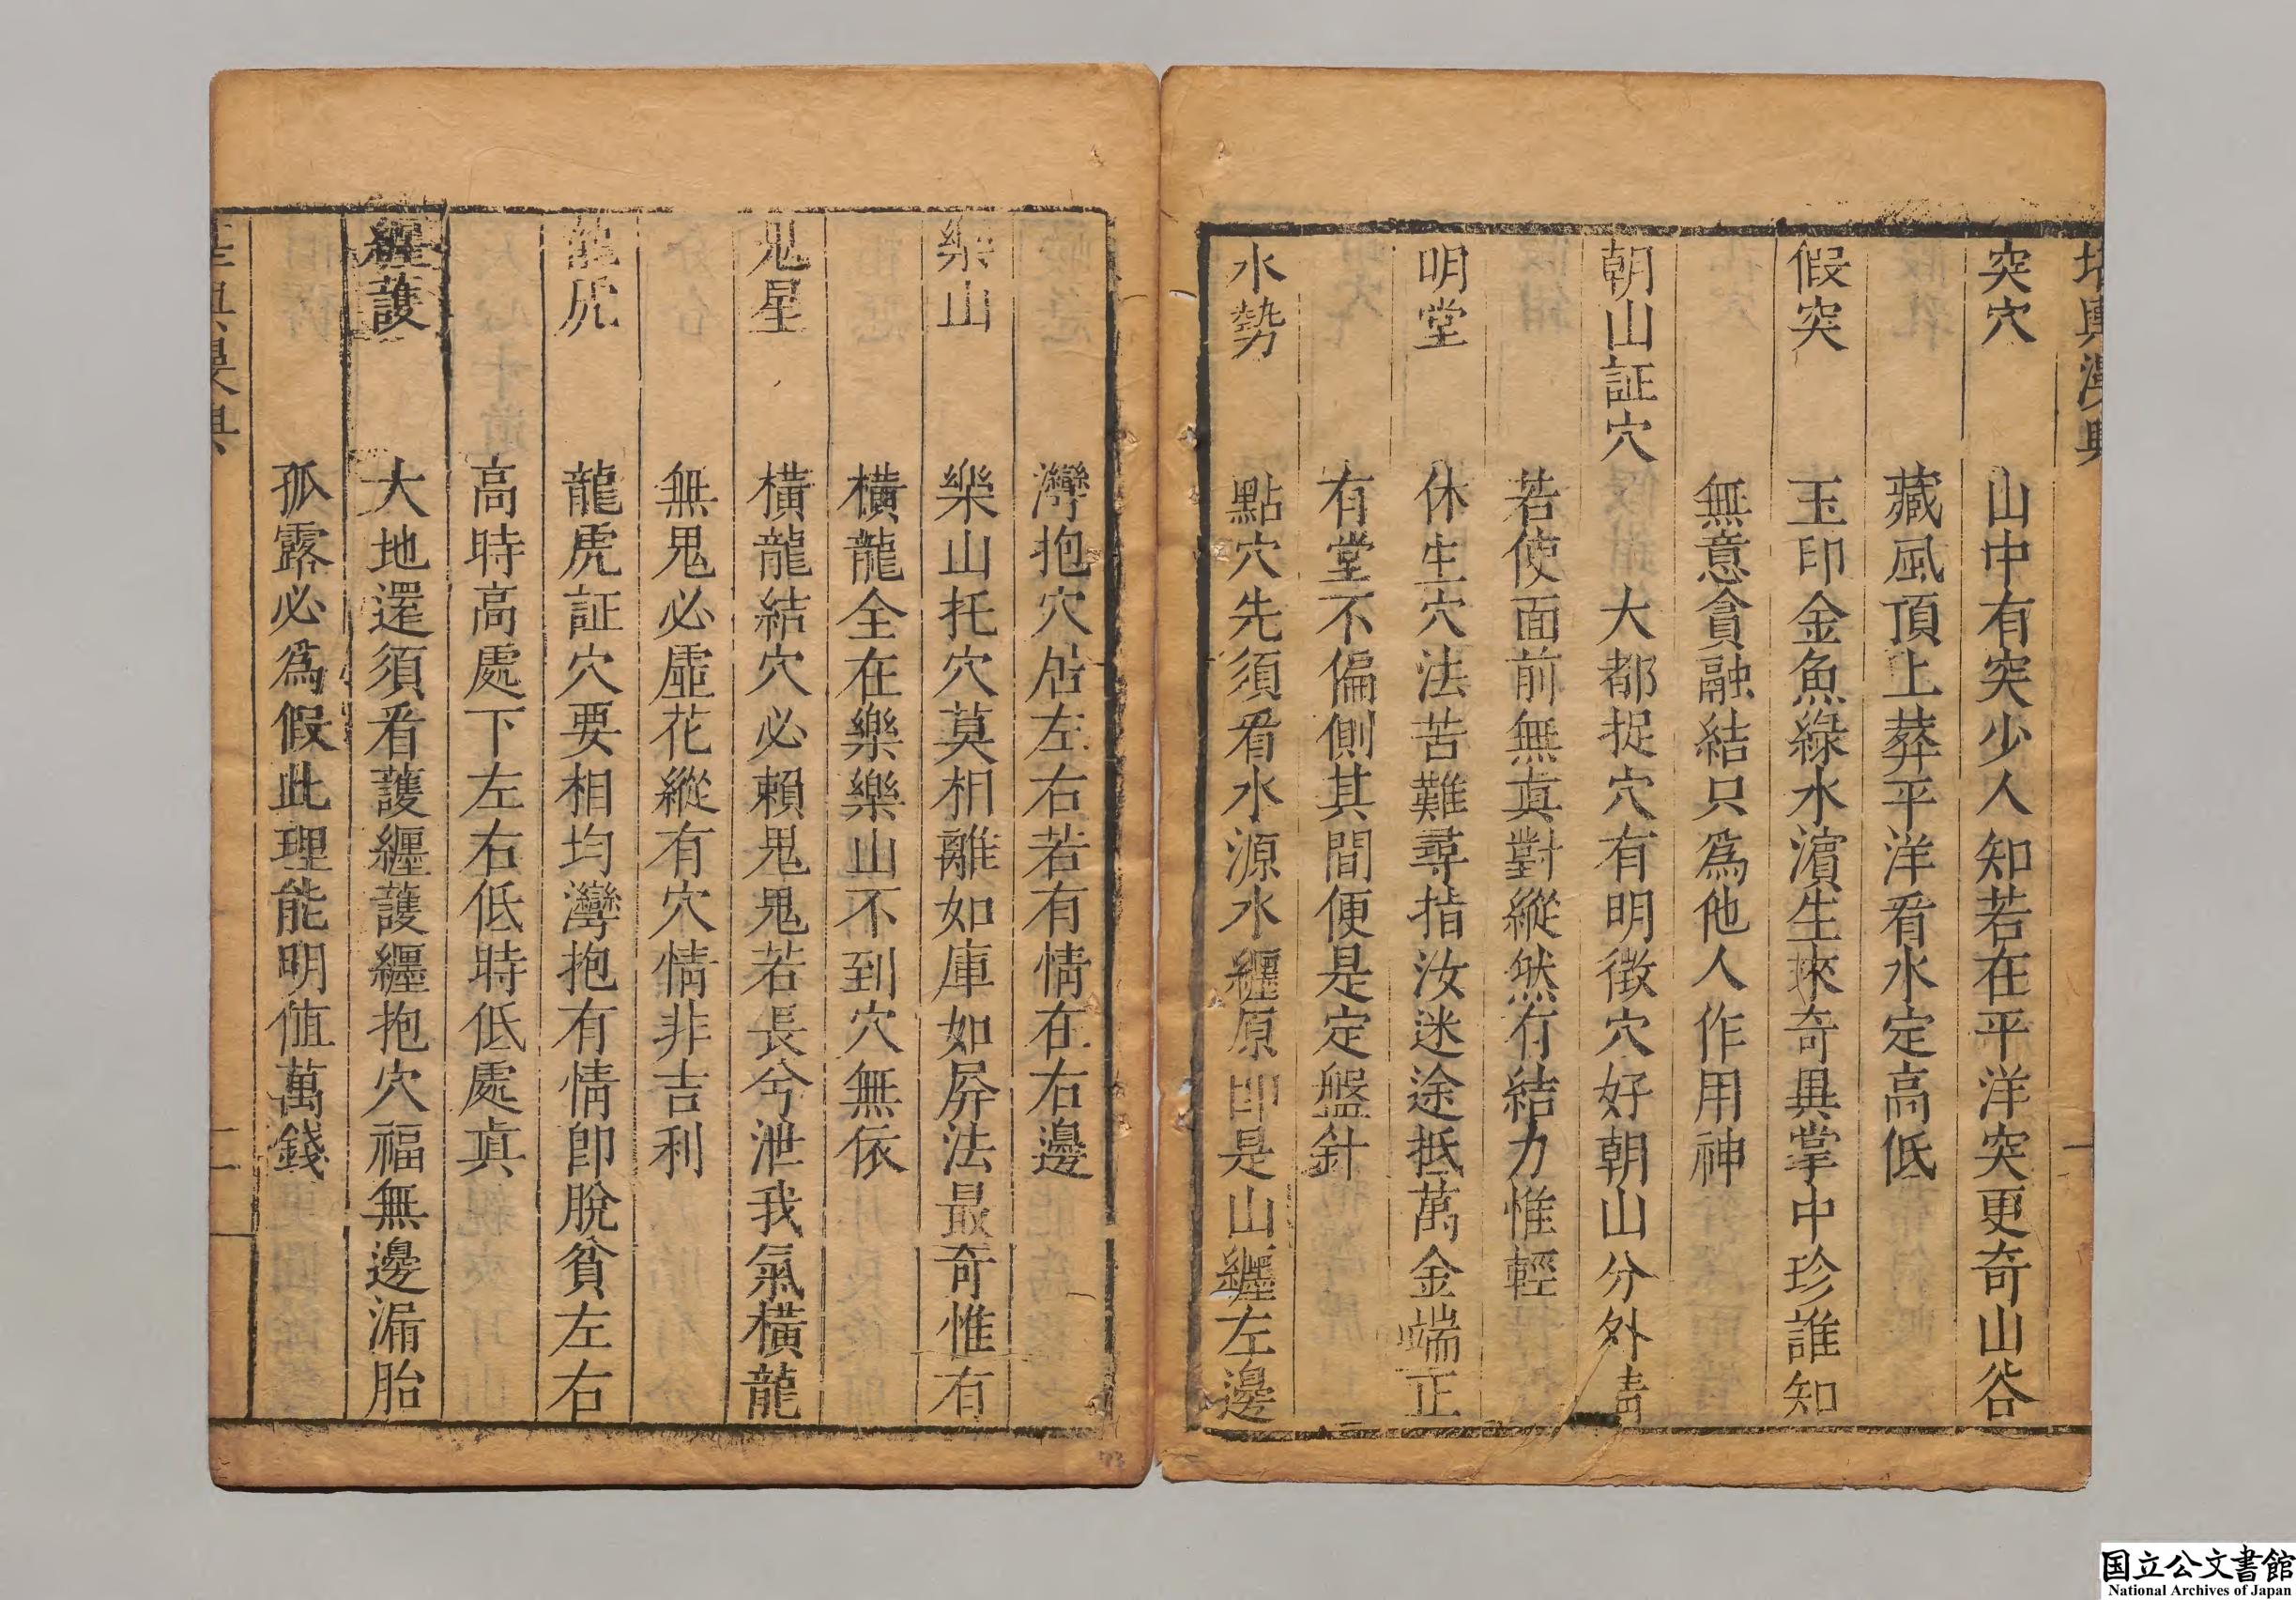 突穴 山中有突少人知若在平洋突更奇山谷
藏風頂上葬平洋看水定高低
假突 玉印金魚綠水濵生來奇異掌中珍誰知
無意貪融結只爲他人作用神
朝山証穴 大都捉穴有明徴穴好朝山分外淸
若使面前無真對縱然有結力惟輕
明堂 休生穴法苦難尋指汝迷途抵萬金端正
有堂不偏側其間便是定盤針
水勢 點穴先須看水源水纏原即是山纏左邊
灣抱穴居左右若有情在右邊
樂山 樂山托穴莫相離如庫如屏法最奇惟有
橫龍全在樂樂山不到穴無依
鬼星 橫龍結穴必賴鬼鬼若長兮泄我氣橫龍
無鬼必虛花縱有穴情非吉利
龍虎 龍虎証穴要相均灣抱有情卽脫貧左右
高時高處下左右低時低處真
纏護 大地還須看護纏護纏抱穴福無邊漏胎
孤露必爲假此理能明值萬錢
二
国立公文書館
National Archives of Japan